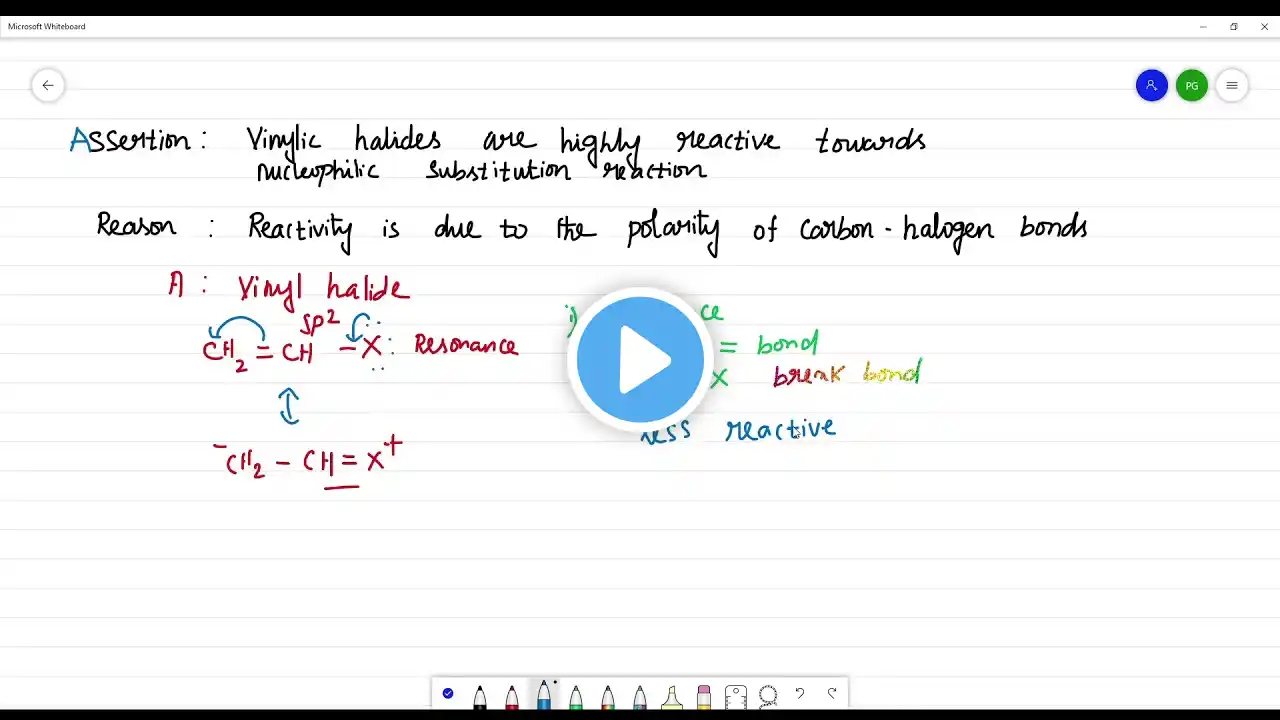 Microsoft Whiteboard
PG
Assertion : Vinylic halides are highly reactive towards
nucleophilic substitution reaction
Reason : Reactivity is due to the polarity of carbon - halogen bonds
A : Vinyl halide
sp2
CH2 = CH - X : Resonance
-CH2 - CH = X+
= bond
X break bond
less reactive